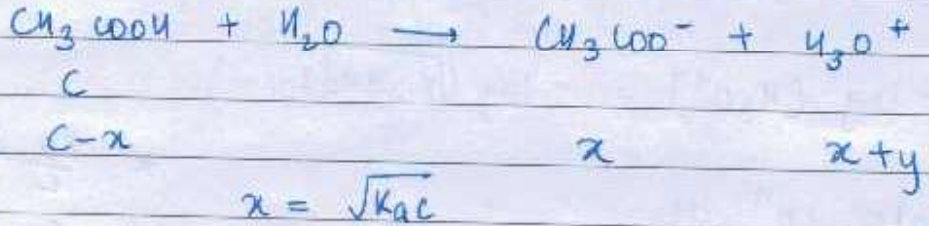 CH₃COOH + H₂O ⟶ CH₃COO⁻ + H₃O⁺
C
C-x x x+y
x = √KₐC